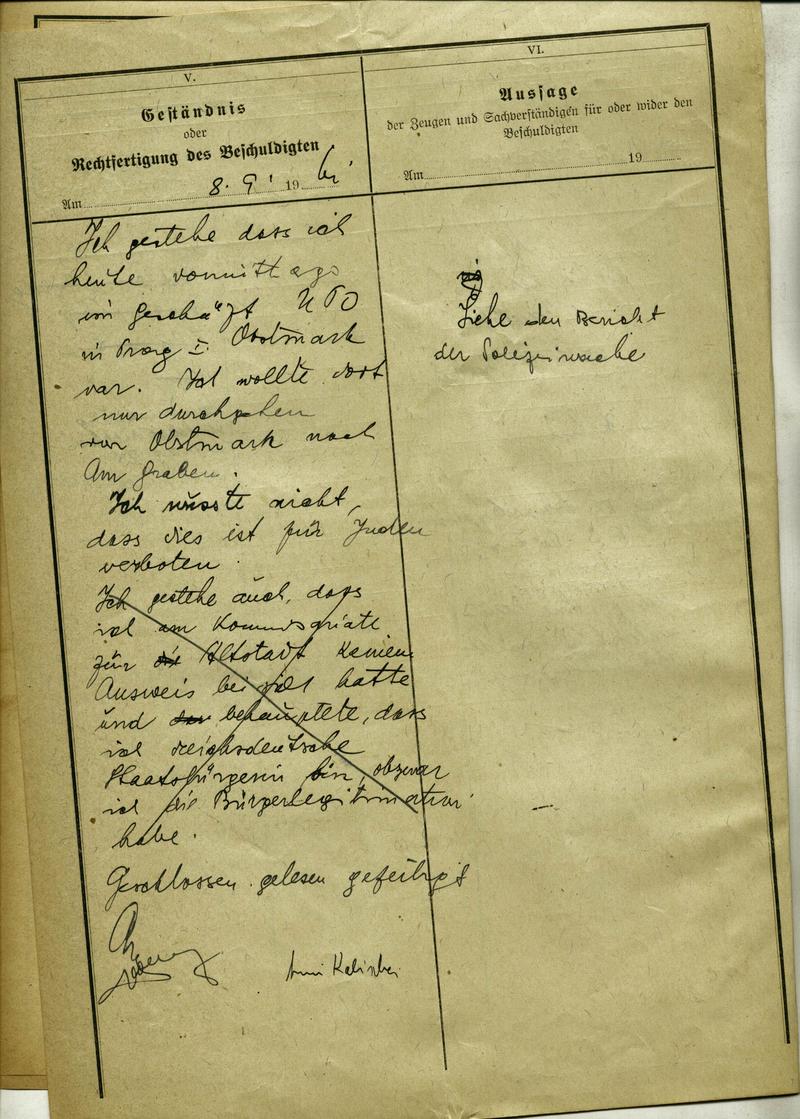 V.
Geständnis
oder
Rechtfertigung des Beschuldigten
Am 8. 9. 19
Ich gestehe dass ich
heute vormittags
im Geschäft
in Prag I. Obstmark
war. Ich wollte dort
nur durchgehen
von Obstmark nach
Am Graben.
Ich wusste nicht,
dass dies ist für Juden
verboten.
Ich gestehe auch, dass
ich am Kommisariate
für die Altstadt keinen
Ausweis bei sich hatte
und behauptete, dass
ich reichsdeutsche
Staatsbürgerin bin, obzwar
ich die Bürgerlegitimation
habe.
Geschlossen gelesen gefertigt
VI.
Aussage
der Zeugen und Sachverständigen für oder wider den
Beschuldigten
Am 19
Siehe den Bericht
der Polizeiwache